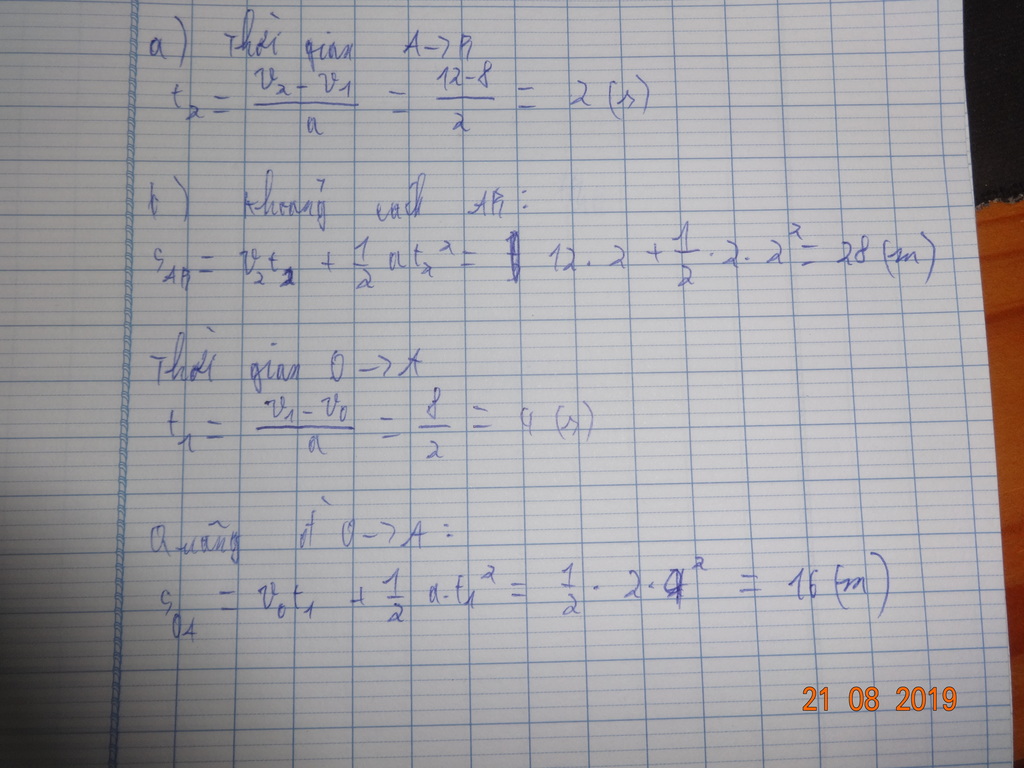 a) Thời gian A→B
t₂ = (v₂ - v₁)/a = (12-8)/2 = 2 (s)
b) Khoảng cách AB:
S_AB = v₂t₂ + 1/2 at₂² = 12.2 + 1/2 . 2. 2² = 28 (m)
Thời gian O→A
t₁ = (v₁ - v₀)/a = 8/2 = 4 (s)
Quãng từ O→A:
S_OA = v₀t₁ + 1/2 a.t₁² = 1/2 . 2.4² = 16 (m)
21 08 2019